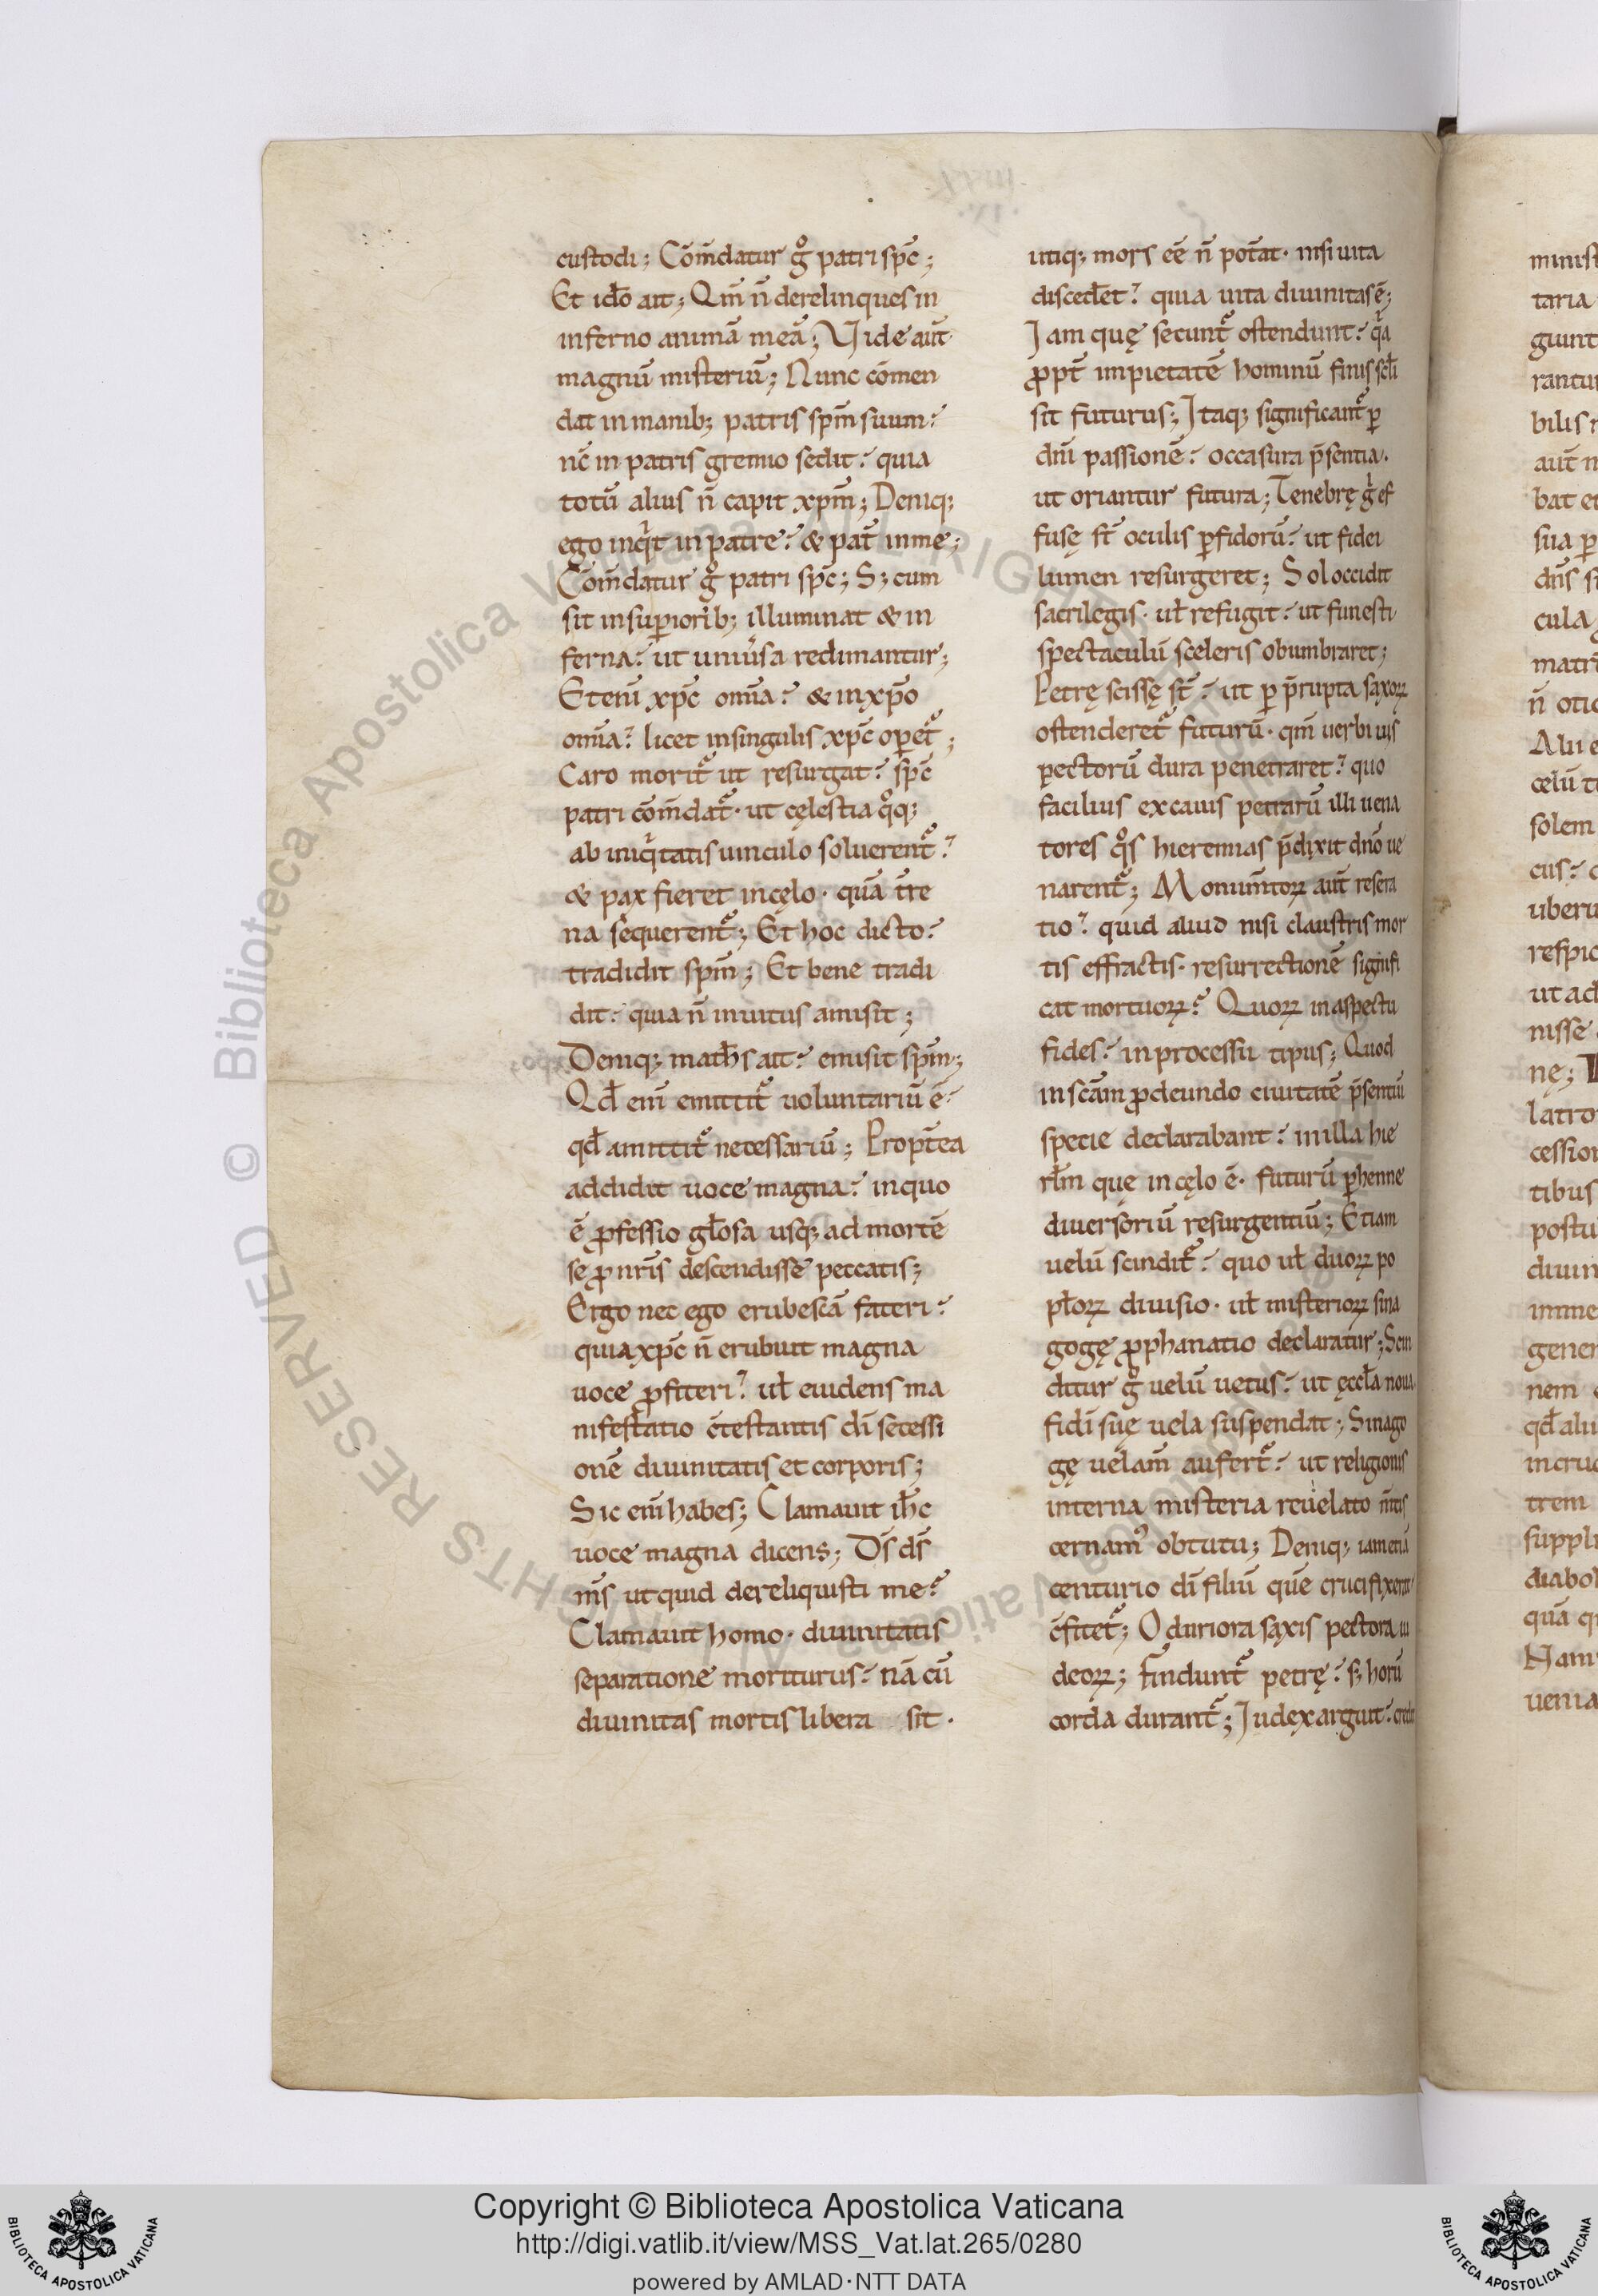 custodi; Com̄datur g̊ patri sp̄c;
Et id̄o ait; Qm̄ n̄ derelinques in
inferno animā meā; Vide aut̄
magnū misteriū; Nunc cōmen
dat in manib; patris sp̄m suum?
nc̄ in patris gremio sedit? quia
totū alius n̄ capit xp̄m; Deniq;
ego inqͥt in patre? & pat̄ in me;
Com̄datur g̊ patri sp̄c; S; cum
sit in sup̄iorib; illuminat & in
ferna? ut uniūsa redimantur;
Eteni̅ xp̄c om̄a? & in xp̄o
om̄a? licet in singulis xp̄c op̄et᷑;
Caro morit᷑ ut resurgat? sp̄c
patri com̄dat᷑· ut cęlestia qͦq;
ab iniqͥtatis uinculo soluerent᷑?
& pax fieret in cęlo· quā t̄re
na sequerent᷑; Et hoc dicto?
tradidit sp̄m; Et bene tradi
dit? quia n̄ inuitus amisit;
Deniq; math̄s ait? emisit sp̄m;
Qd̄ eni̅ emittit᷑ uoluntariū ē?
qd̄ amittit᷑ necessariū; Propt̄ea
addidit uoce magna? in quo
ē ꝓfessio gl̄osa usq; ad mortē
se ꝓ nr̄is descendisse peccatis;
Ergo nec ego erubescā fateri?
quia xp̄c n̄ erubuit magna
uoce ꝓfiteri? ul̄ euidens ma
nifestatio c̄testantis dī secessi
onē diuinitatis et corporis;
Sic eni̅ habes; Clamauit ih̄c
uoce magna dicens; Ds̄ ds̄
ms̄ ut quid dereliquisti me?
Clamauit homo· diuinitatis
separatione moriturus? nā cū
diuinitas mortis libera sit·
utiq; mors eē n̄ pot̄at· nisi uita
disced̄et? quia uita diuinitas ē;
Iam quę secunt᷑ ostendunt? qͣ
ꝓpt̄ impietatē hominū finis scl̄i
sit futurus; Itaq; significant᷑ ꝑ
dnī passionē? occasura p̄sentia·
ut oriantur futura; Tenebrę gͥ ef
fusę st̄ oculis ꝑfidorū? ut fidei
lumen resurgeret; Sol occidit
sacrilegis· ul̄ refugit? ut funesti
spectaculū sceleris obumbraret;
Petrę scissę st̄? ut ꝑ p̄rupta saxoꝝ
ostenderet᷑ futurū· qm̄ uerbi uis
pectorū dura penetraret? quo
facilius ex cauis petrarū illi uena
tores qͦs hieremias p̄dixit dn̄o ue
narent᷑; Monum̄toꝝ aut̄ resera
tio? quid aliud nisi claustris mor
tis effractis· resurrectionē signifi
cat mortuoꝝ? Quoꝝ in aspectu
fides? in processu tipus; Quod
in scām ꝓdeundo ciuitatē p̄sentiū
specie declarabant? in illa hie
rl̄m que in cęlo ē· futurū ꝑhenne
diuersoriū resurgentiū; Etiam
uelū scindit᷑? quo ul̄ duoꝝ po
pl̄oꝝ diuisio· ul̄ misterioꝝ sina
gogę ꝓphanatio declaratur; Scin
ditur g̊ uelū uetus? ut ęccl̄a noua
fidī suę uela suspendat; Sinago
gę uelam̄ aufert᷑? ut religionis
interna misteria reuelato m̄tis
cernam᷒ obtutu; Deniq; iam etiā
centurio dī filiū quē crucifixerat
c̄fitet᷑; O duriora saxis pectora iu
deoꝝ; Findunt᷑ petrę? s; horū
corda durant᷑; Iudex arguit? credit
minist
taria
giunt
rantur
bilis
aut̄
bat et
sua ꝑ
dn̄s si
cula
matri
n̄ otio
Alii
celū
solem
cus?
uberu
respic
ut ad
nisse
nę;
latro
cession
tibus
postu
diuin
imme
gener
nem
qd̄ alii
in cruc
trem
suppli
diabol
quā
Nam
uenia
Copyright © Biblioteca Apostolica Vaticana
http://digi.vatlib.it/view/MSS_Vat.lat.265/0280
powered by AMLAD·NTT DATA
BIBLIOTECA APOSTOLICA VATICANA
BIBLIOTECA APOSTOLICA VATICANA